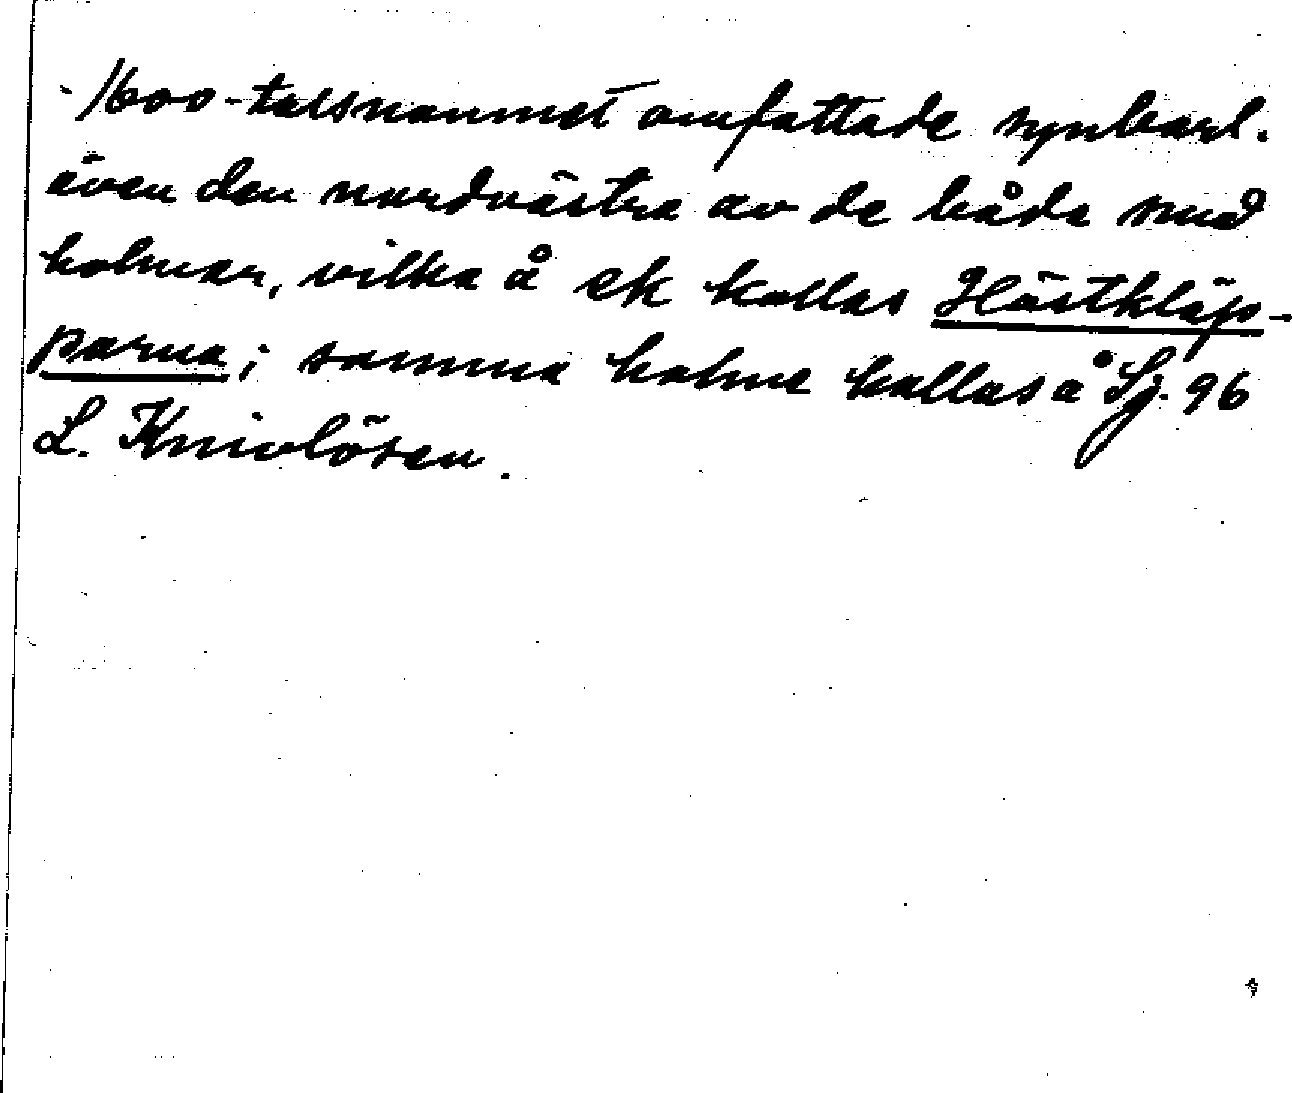 1600-talsnamnet omfattade synbarl.
även den nordvästra av de båda små
holmar, vilka å ek kallas Hästkläp-
parna; samma holme kallas å Sj. 96
L. Knivlösen.